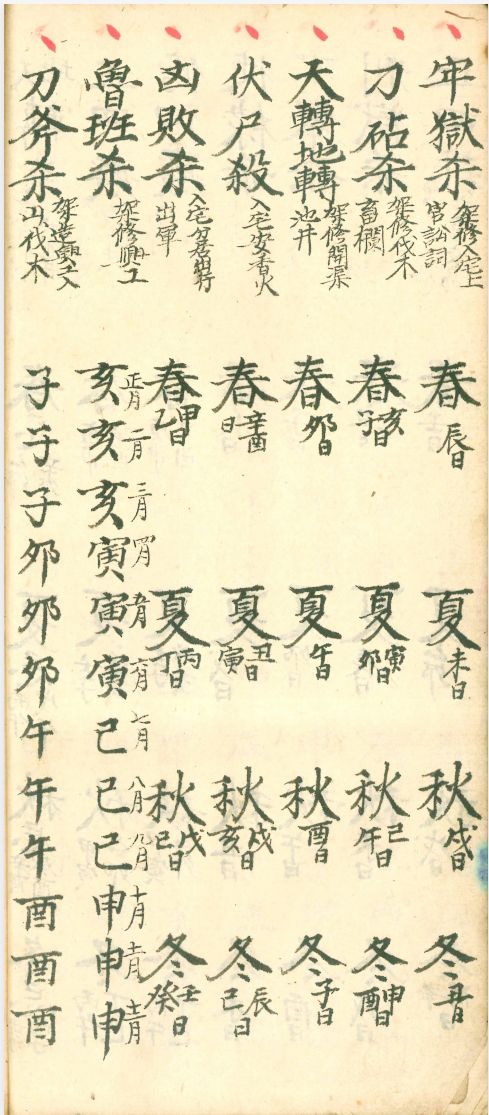 牢獄杀 架修入宅上官訟詞 春辰日 夏未日 秋戌日 冬丑日
刀砧杀 架修伐木畜欄 春亥子日 夏寅卯日 秋己午日 冬申酉日
天轉地轉 架修開渠池井 春卯日 夏午日 秋酉日 冬子日
伏尸殺 入宅安香火 春辛酉日 夏丑寅日 秋戌亥日 冬辰己日
凶敗杀 入宅出行出軍 春甲乙日 夏丙丁日 秋戊己日 冬壬癸日
魯班杀 架修興工 正月亥 二月亥 三月亥 四月寅 五月寅 六月寅 七月己 八月己 九月己 十月申 十一月申 十二月申
刀斧杀 架造山伐木 子 子 子 卯 卯 卯 午 午 午 酉 酉 酉